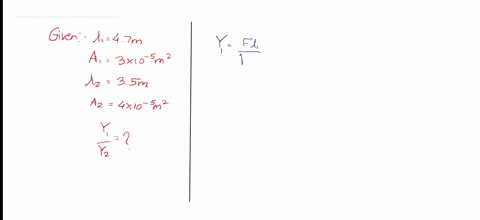 Given:- l₁=4.7m
A₁ = 3×10⁻⁵m²
l₂ = 3.5m
A₂ = 4×10⁻⁵m²
Y₁/Y₂ = ?
Y₁ = Fl₁/